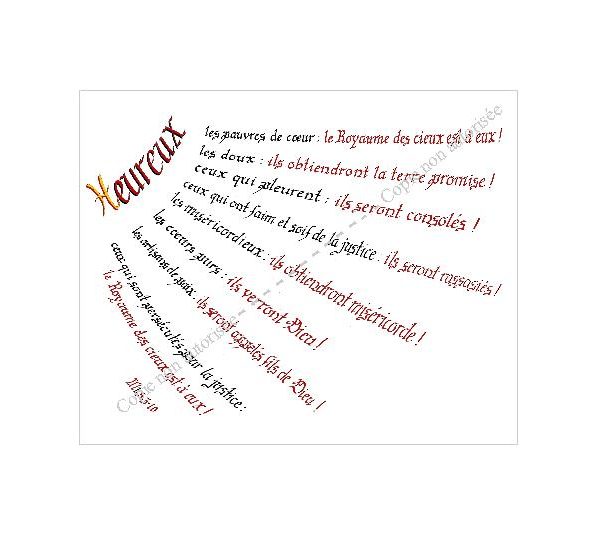 Heureux
les pauvres de cœur : le Royaume des cieux est à eux !
les doux : ils obtiendront la terre promise !
ceux qui pleurent : ils seront consolés !
ceux qui ont faim et soif de la justice : ils seront rassasiés !
les miséricordieux : ils obtiendront miséricorde !
les cœurs purs : ils verront Dieu !
les artisans de paix : ils seront appelés fils de Dieu !
ceux qui sont persécutés pour la justice :
le Royaume des cieux est à eux !
Copie non autorisée
Copie non autorisée